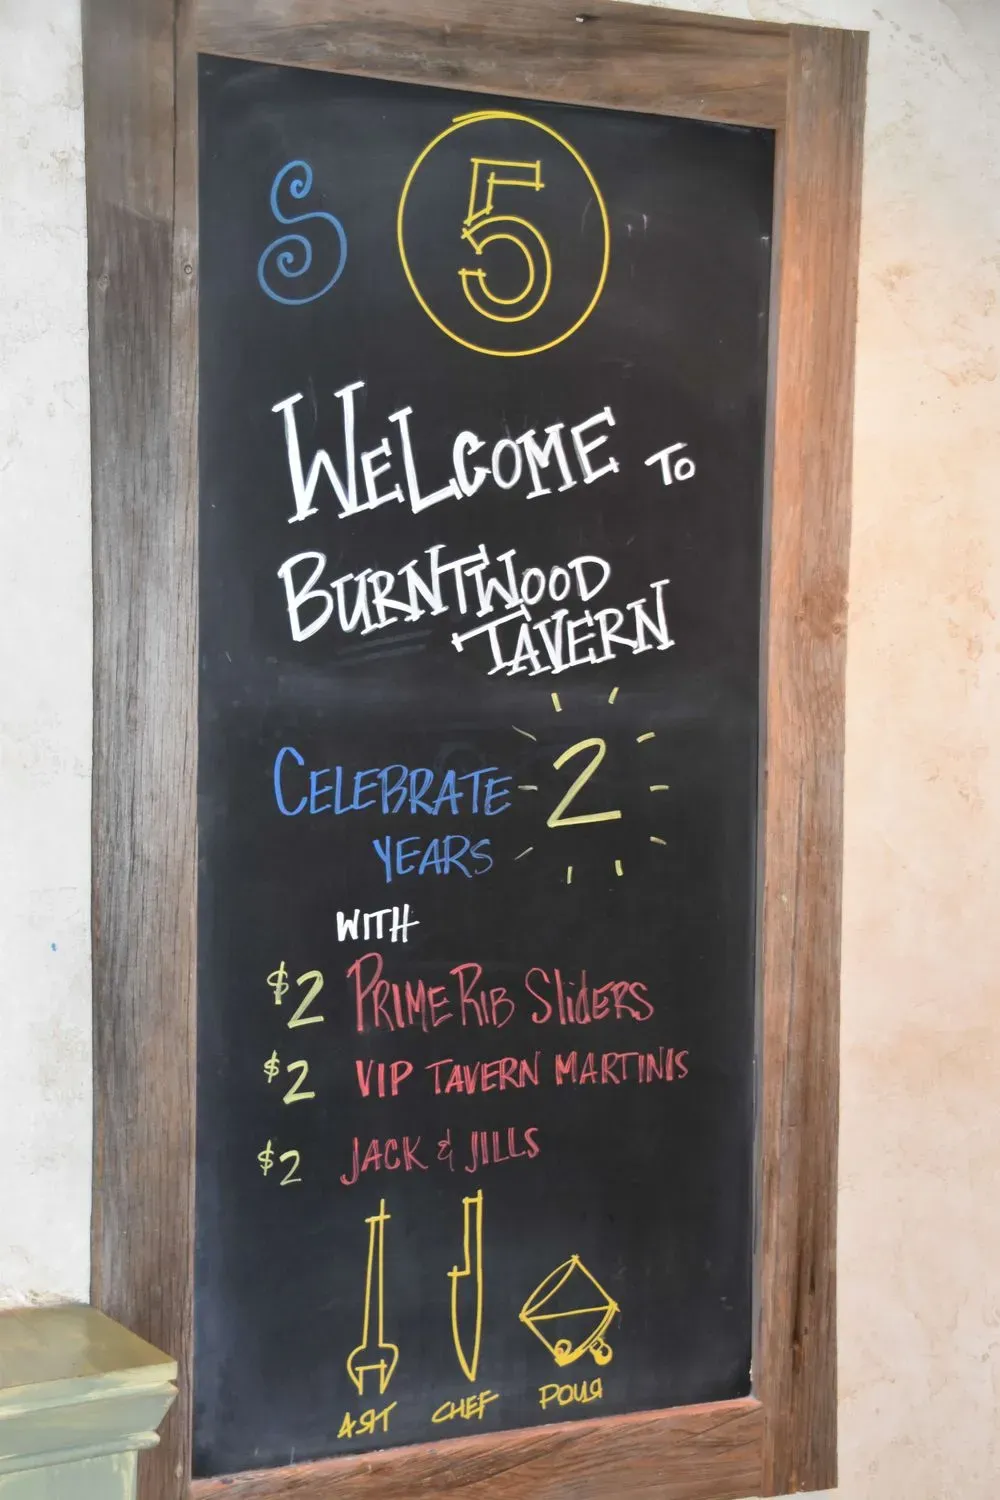 S 5
WELCOME TO
BURNTWOOD
TAVERN
CELEBRATE 2
YEARS
WITH
$2 PRIME RIB SLiDERS
$2 VIP TAVERN MARTINIS
$2 JACK & JILLS
ART CHEF POUR